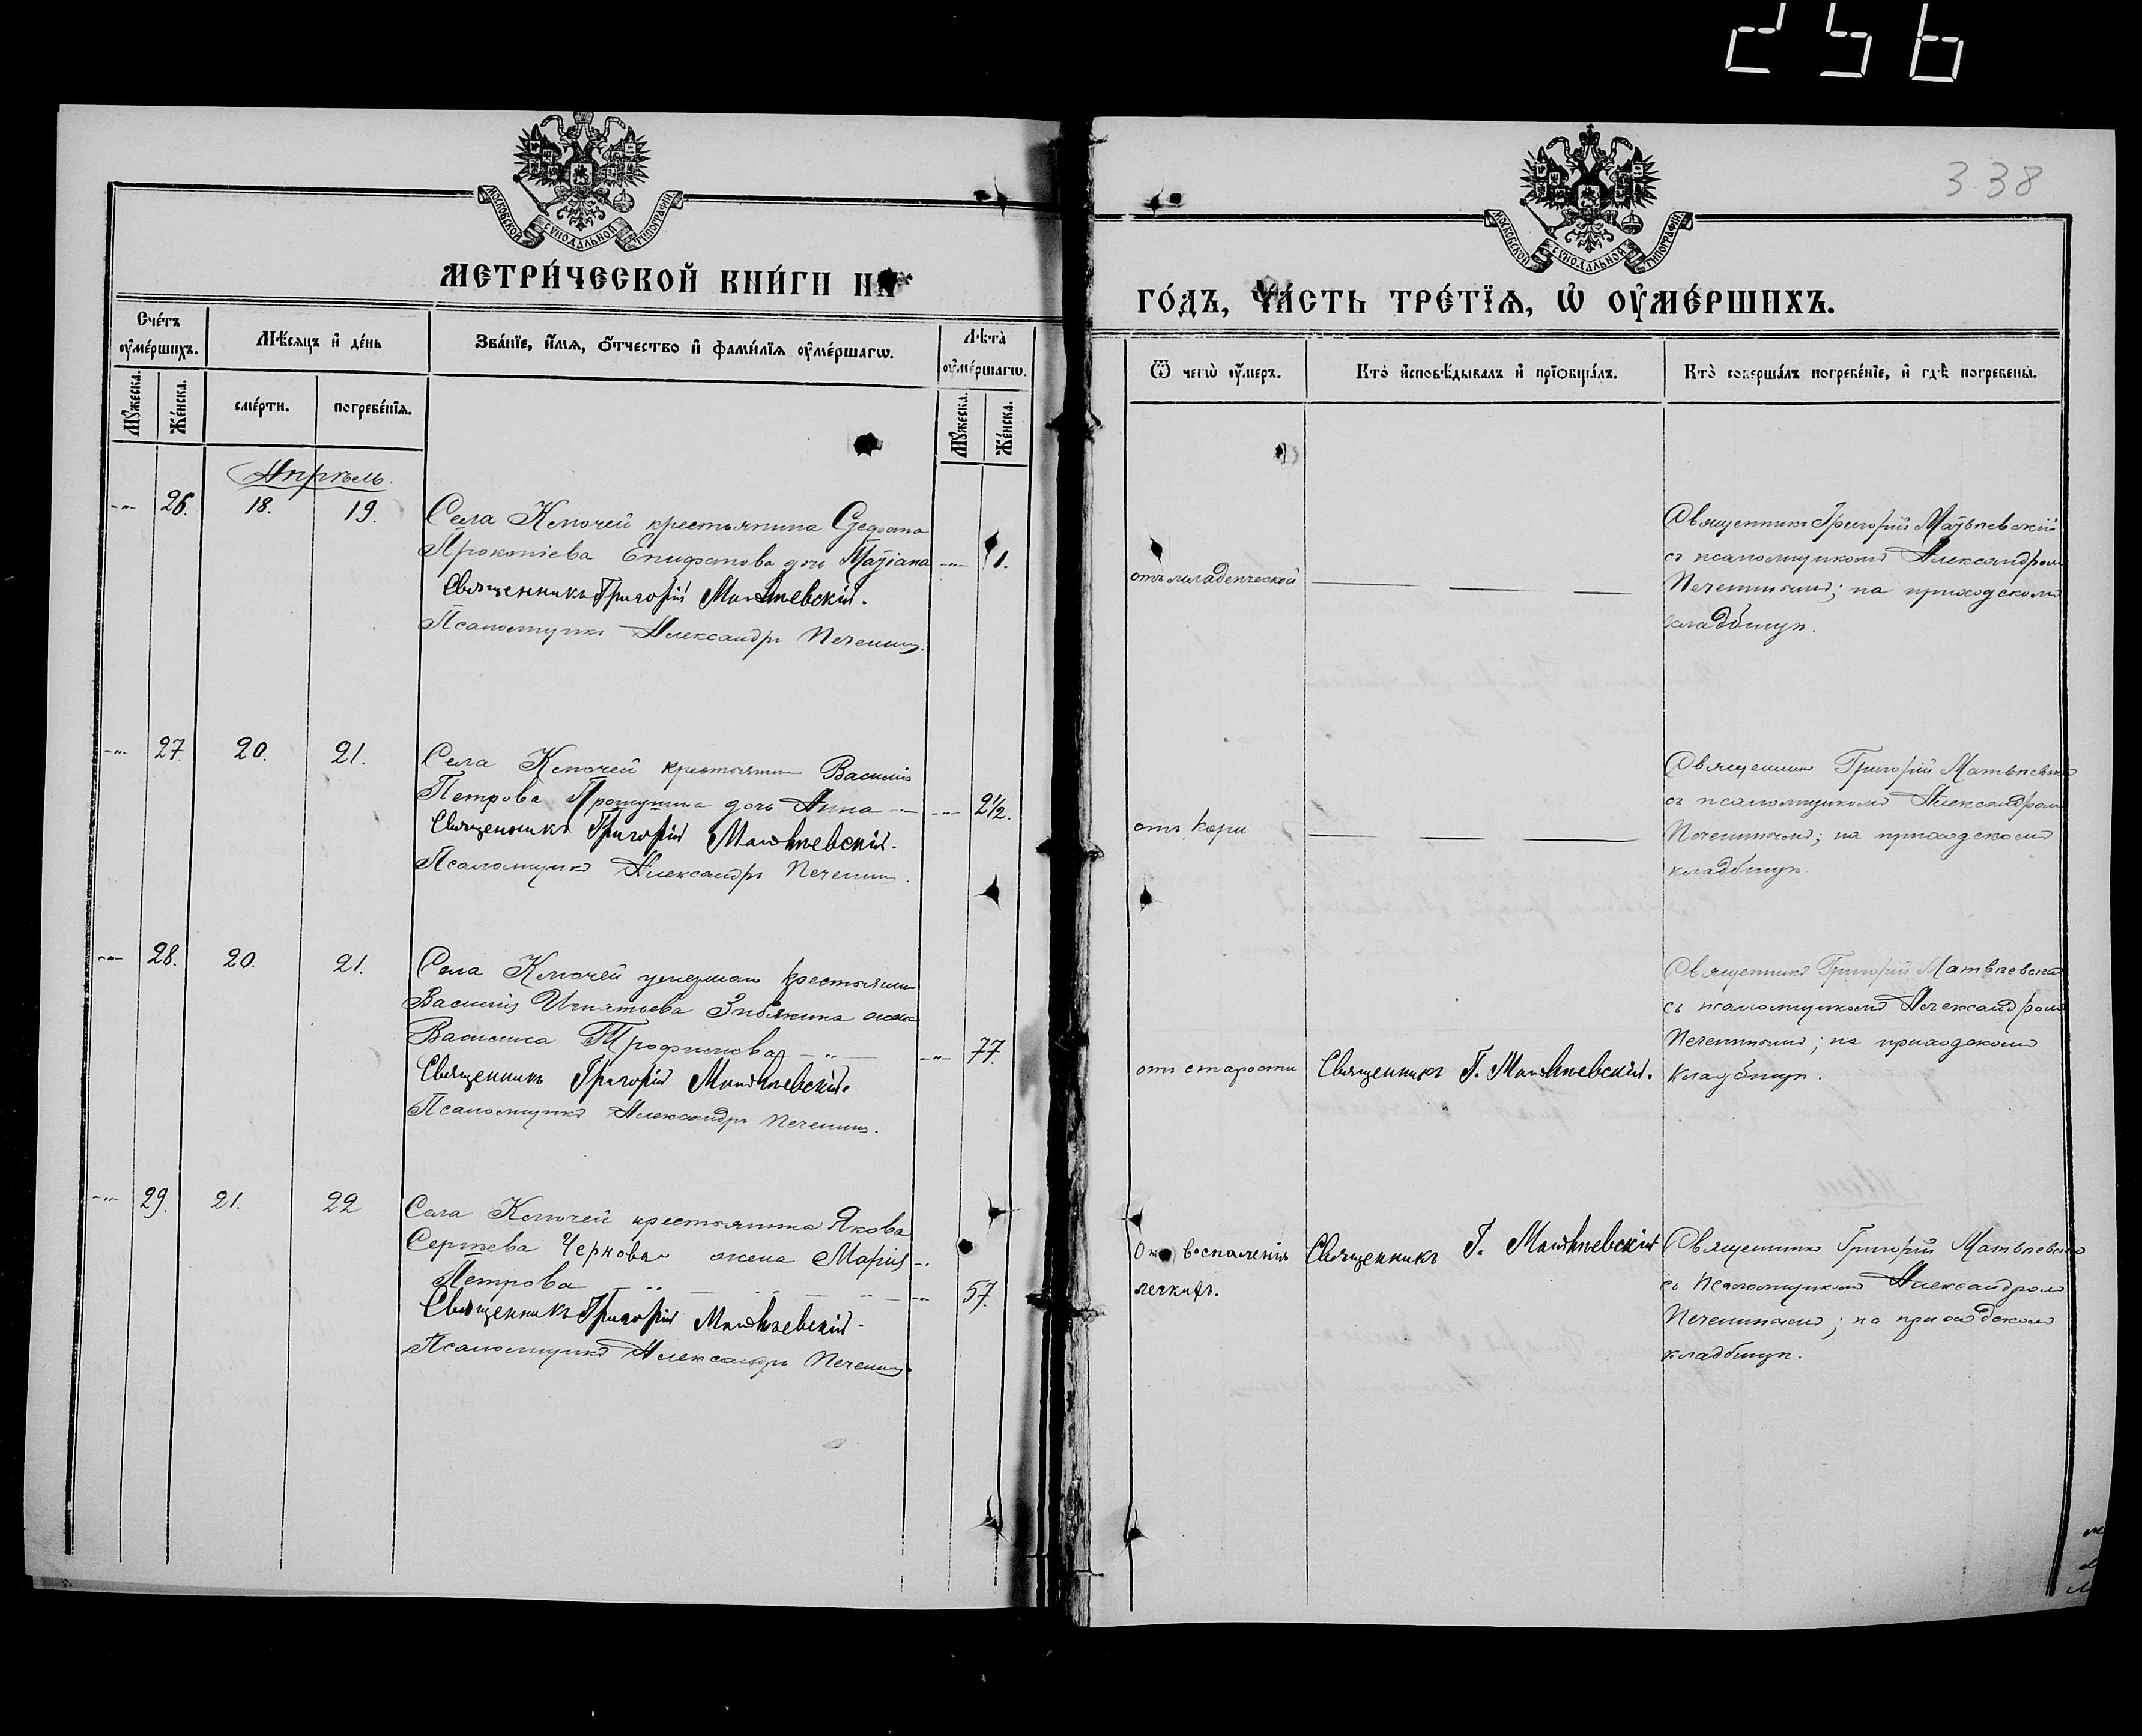 256
338
МОСКОВСКОЙ СУНОДАЛЬНОЙ ТИПОГРАФІИ
МОСКОВСКОЙ СУНОДАЛЬНОЙ ТИПОГРАФІИ
МЕТРИ́ЧЕСКОЙ КНИ́ГИ НА
ГО́ДЪ, ЧА́СТЬ ТРЕ́ТІѦ, Ѡ ОУМЕ́РШИХЪ.
Сче́тъ оумéршихъ.
Мꙋжеска.
Же́нска.
Мѣ́сѧцъ и де́нь
сме́рти.
погребе́нїѧ.
Зва́нїе, и́мѧ, о́тчество и фами́лїѧ оуме́ршагѡ.
Лѣ́та оуме́ршагѡ.
Мꙋжеска.
Же́нска.
Ѿ чегѡ̀ оу́меръ.
Кто̀ исповѣ́дывалъ и прїобща́лъ.
Кто̀ соверша́лъ погребе́нїе, и гдѣ̀ погребены̀.
Апрѣль.
26. 18. 19.
Села Ключей крестьянина Стефана
Прокопіева Епифанова дочь Татіана 1.
Священникъ Григорій Матвѣевскій.
Псаломщикъ Александръ Печенинъ.
отъ младенческой
Священникъ Григорій Матвѣевскій
съ псаломщикомъ Александромъ
Печенинымъ; на приходскомъ
кладбищѣ.
27. 20. 21.
Села Ключей крестьянина Василія
Петрова дочь Анна 2½.
Священникъ Григорій Матвѣевскій.
Псаломщикъ Александръ Печенинъ.
отъ кори
Священникъ Григорій Матвѣевскій
съ псаломщикомъ Александромъ
Печенинымъ; на приходскомъ
кладбищѣ.
28. 20. 21.
Села Ключей умершаго крестьянина
Василія Игнатьева жена
Василиса Трофимова 77.
Священникъ Григорій Матвѣевскій.
Псаломщикъ Александръ Печенинъ.
отъ старости
Священникъ Г. Матвѣевскій.
Священникъ Григорій Матвѣевскій
съ псаломщикомъ Александромъ
Печенинымъ; на приходскомъ
кладбищѣ.
29. 21. 22
Села Ключей крестьянина Якова
Сергѣева Чернова жена Марія
Петрова 57.
Священникъ Григорій Матвѣевскій.
Псаломщикъ Александръ Печенинъ.
Отъ воспаленія
легкихъ.
Священникъ Г. Матвѣевскій
Священникъ Григорій Матвѣевскій
съ псаломщикомъ Александромъ
Печенинымъ; на приходскомъ
кладбищѣ.